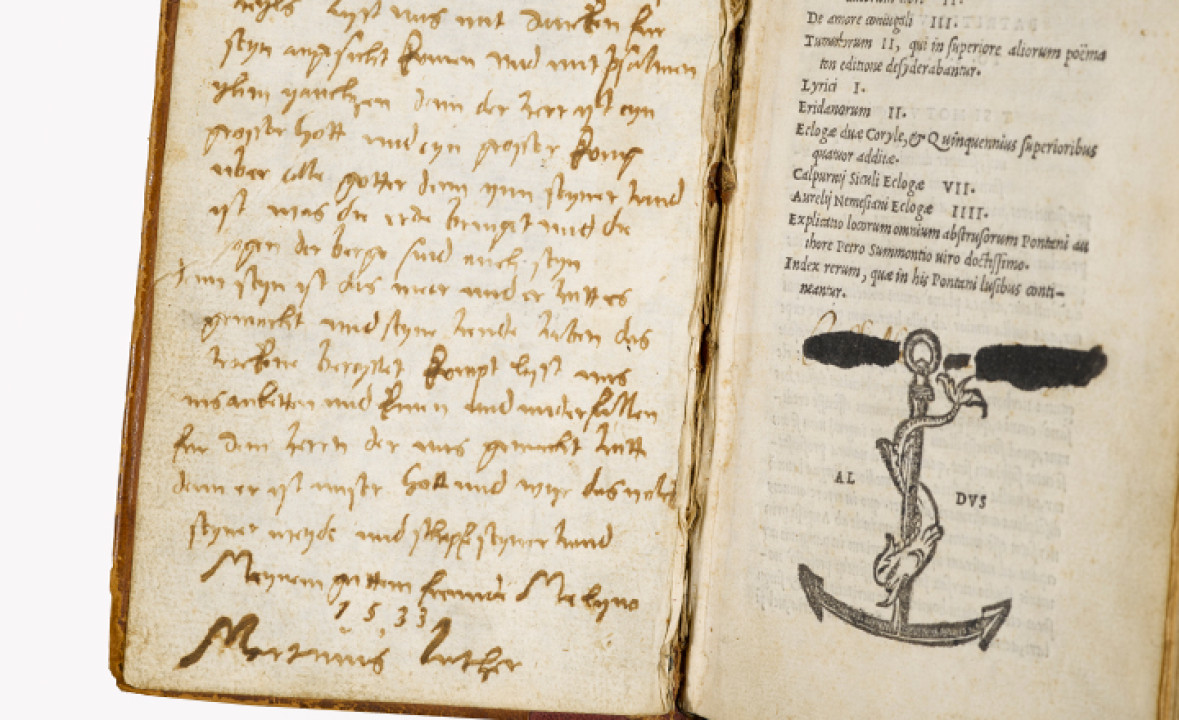 heyls Lasst uns mit dancken fur
seyn angesicht komen und mit psalmen
yhm jauchzen denn der herr ist eyn
grosser Gott und eyn grosser konig
uber alle gotter denn ynn seyner hand
ist was die erde bringet und die
der berge sind auch seyn
Denn seyn ist das meer und er hatt es
gemacht und seyne hende haben das
trockene bereyttet kompt lasst uns
anbetten und knien und nidderfallen
fur dem herrn der uns gemacht hatt
denn er ist unser Gott und wyr das volck
seyner weyde und schaff seyner hand
Meynem guttem freund
1533
Martinus Luther
II.
De amore coniugali III.
Tumulorum II, qui in superiore aliorum poëma
ton editione desyderabantur.
Lyrici I.
Eridanorum II.
Eclogæ duæ Coryle, & Quinquennius superioribus
quatuor additæ.
Calpurnij Siculi Eclogæ VII.
Aurelij Nemesiani Eclogæ IIII.
Explicatio locorum omnium abstrusorum Pontani au
thore Petro Summontio uiro doctissimo.
Index rerum, quæ in his Pontani lusibus conti-
neantur.
AL DVS